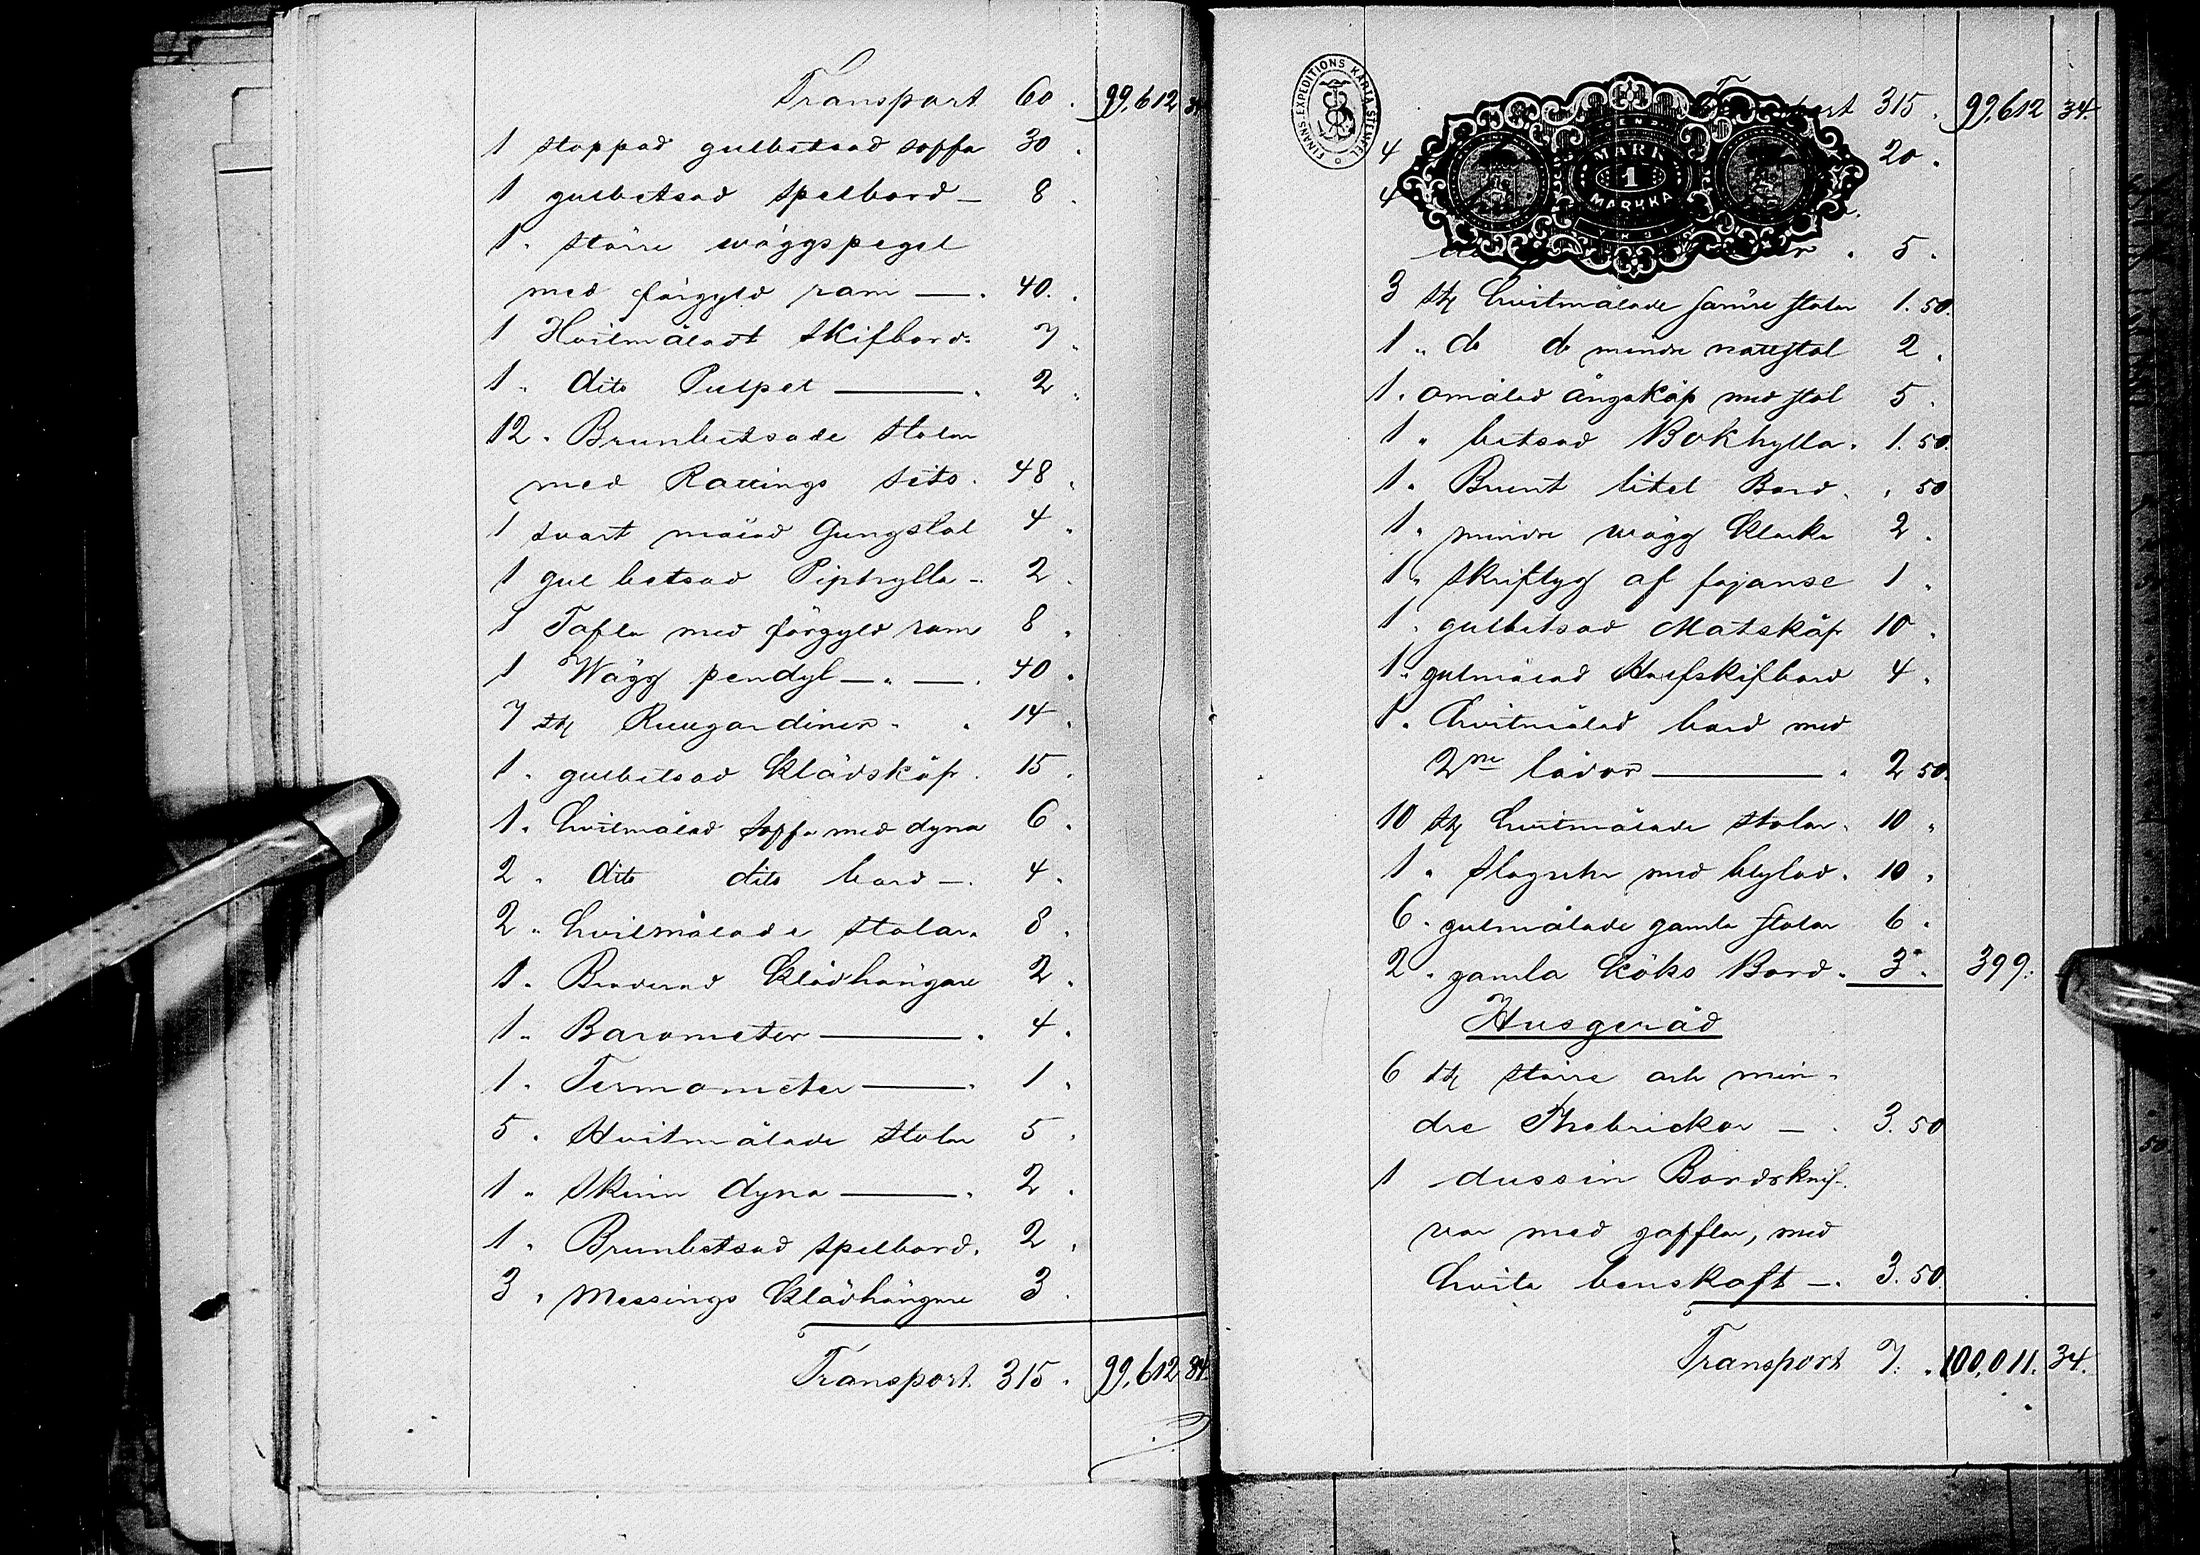 Transport 60 . 99,612 34
1 stoppad gulbetsad soffa 30 .
1 gulbetsad spelbord — 8 .
1 . större wäggspegel
med förgyld ram — . 40 .
1 Hvitmåladt skifbord . 7 .
1 . dito Pulpet — . 2 .
12 . Brunbetsade stolar
med Rottings sits . 48 .
1 svart målad Gungstol 4 .
1 gul betsad Piphylla - 2 .
1 Tafla med förgyld ram 8 .
1 Wägg pendyl — . — . 40 .
7 st Rullgardiner . . 14 .
1 . gulbetsad klädskåp . 15 .
1 . hvitmålad soffa med dyna 6 .
2 . dito dito bord — . 4 .
2 . hvitmålade stolar . 8 .
1 . Broderad klädhängare 2 .
1 . Barometer — . 4 .
1 . Termometer — . 1 .
5 . Hvitmålade stolar 5 .
1 . Skinn dyna — . 2 .
1 . Brunbetsad spelbord . 2 .
3 . Messings klädhängare 3 .
Transport 315 . 99,612 34.
FINANS-EXPEDITIONS KARTA STEMPEL
MARK
1
MARKKA
Transport 315 . 99,612 34.
4 20 .
4
. 5 .
3 st hvitmålade sämre stolar 1. 50.
1 . do do mindre nattstol 2 .
1 . omålad ångskåp med stol 5 .
1 . betsad Bokhylla . 1. 50.
1 . Brunt litet Bord . . 50
1 . mindre wägg klocka 2 .
1 . skriftyg af fajanse 1 .
1 . gulbetsad Matskåp 10 .
1 . gulmålad Halfskifbord 4 .
1 . hvitmålad bord med
2ne lådor — . 2 50.
10 st hvitmålade stolar . 10 .
1 . Slagur med blylod . 10 .
6 . gulmålade gamla stolar 6 .
2 . gamla köks Bord . 3 . 399.
Husgeråd
6 st större och min-
dre Thebrickor — . 3. 50
1 dussin Bordsknif-
var med gafflar, med
hvita benskaft — . 3. 50
Transport 7. . 100,011. 34.